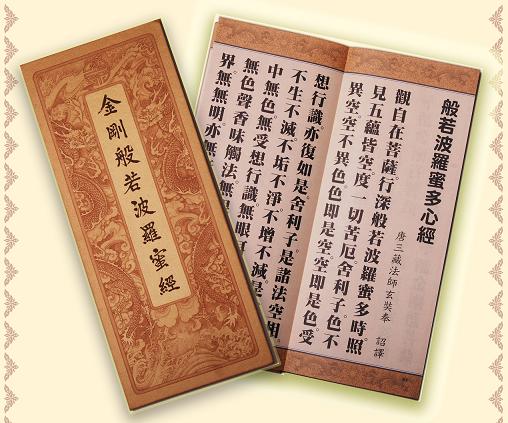 金剛般若波羅蜜經
般若波羅蜜多心經
唐三藏法師玄奘奉 詔譯
觀自在菩薩。行深般若波羅蜜多時。照
見五蘊皆空。度一切苦厄。舍利子。色不
異空。空不異色。色即是空。空即是色。受
想行識。亦復如是。舍利子。是諸法空相。
不生不滅。不垢不淨。不增不減。是
中無色。無受想行識。無眼
無色聲香味觸法。無
界。無無明。亦無